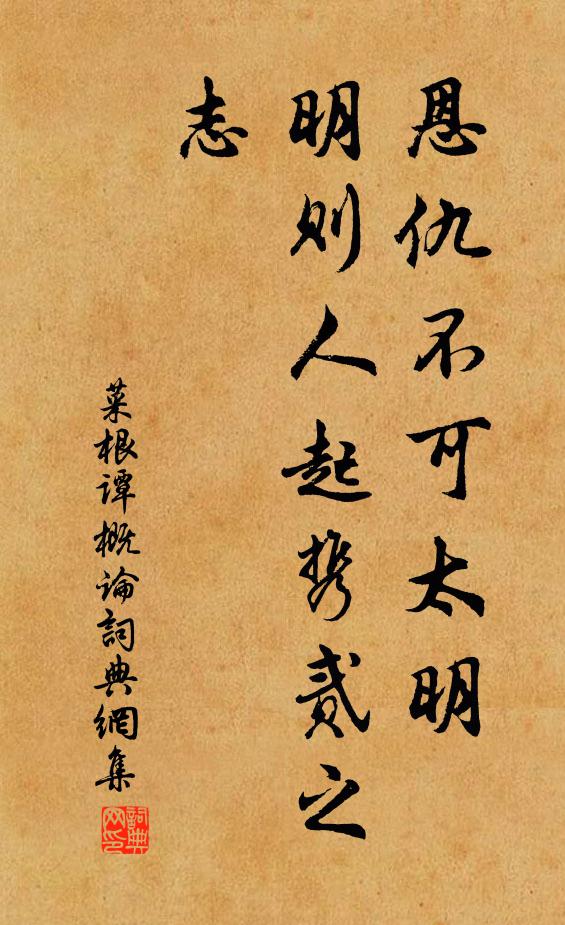 恩仇不可太明
明则人起携贰之
志
菜根谭概论詞典網集
詞典
网印